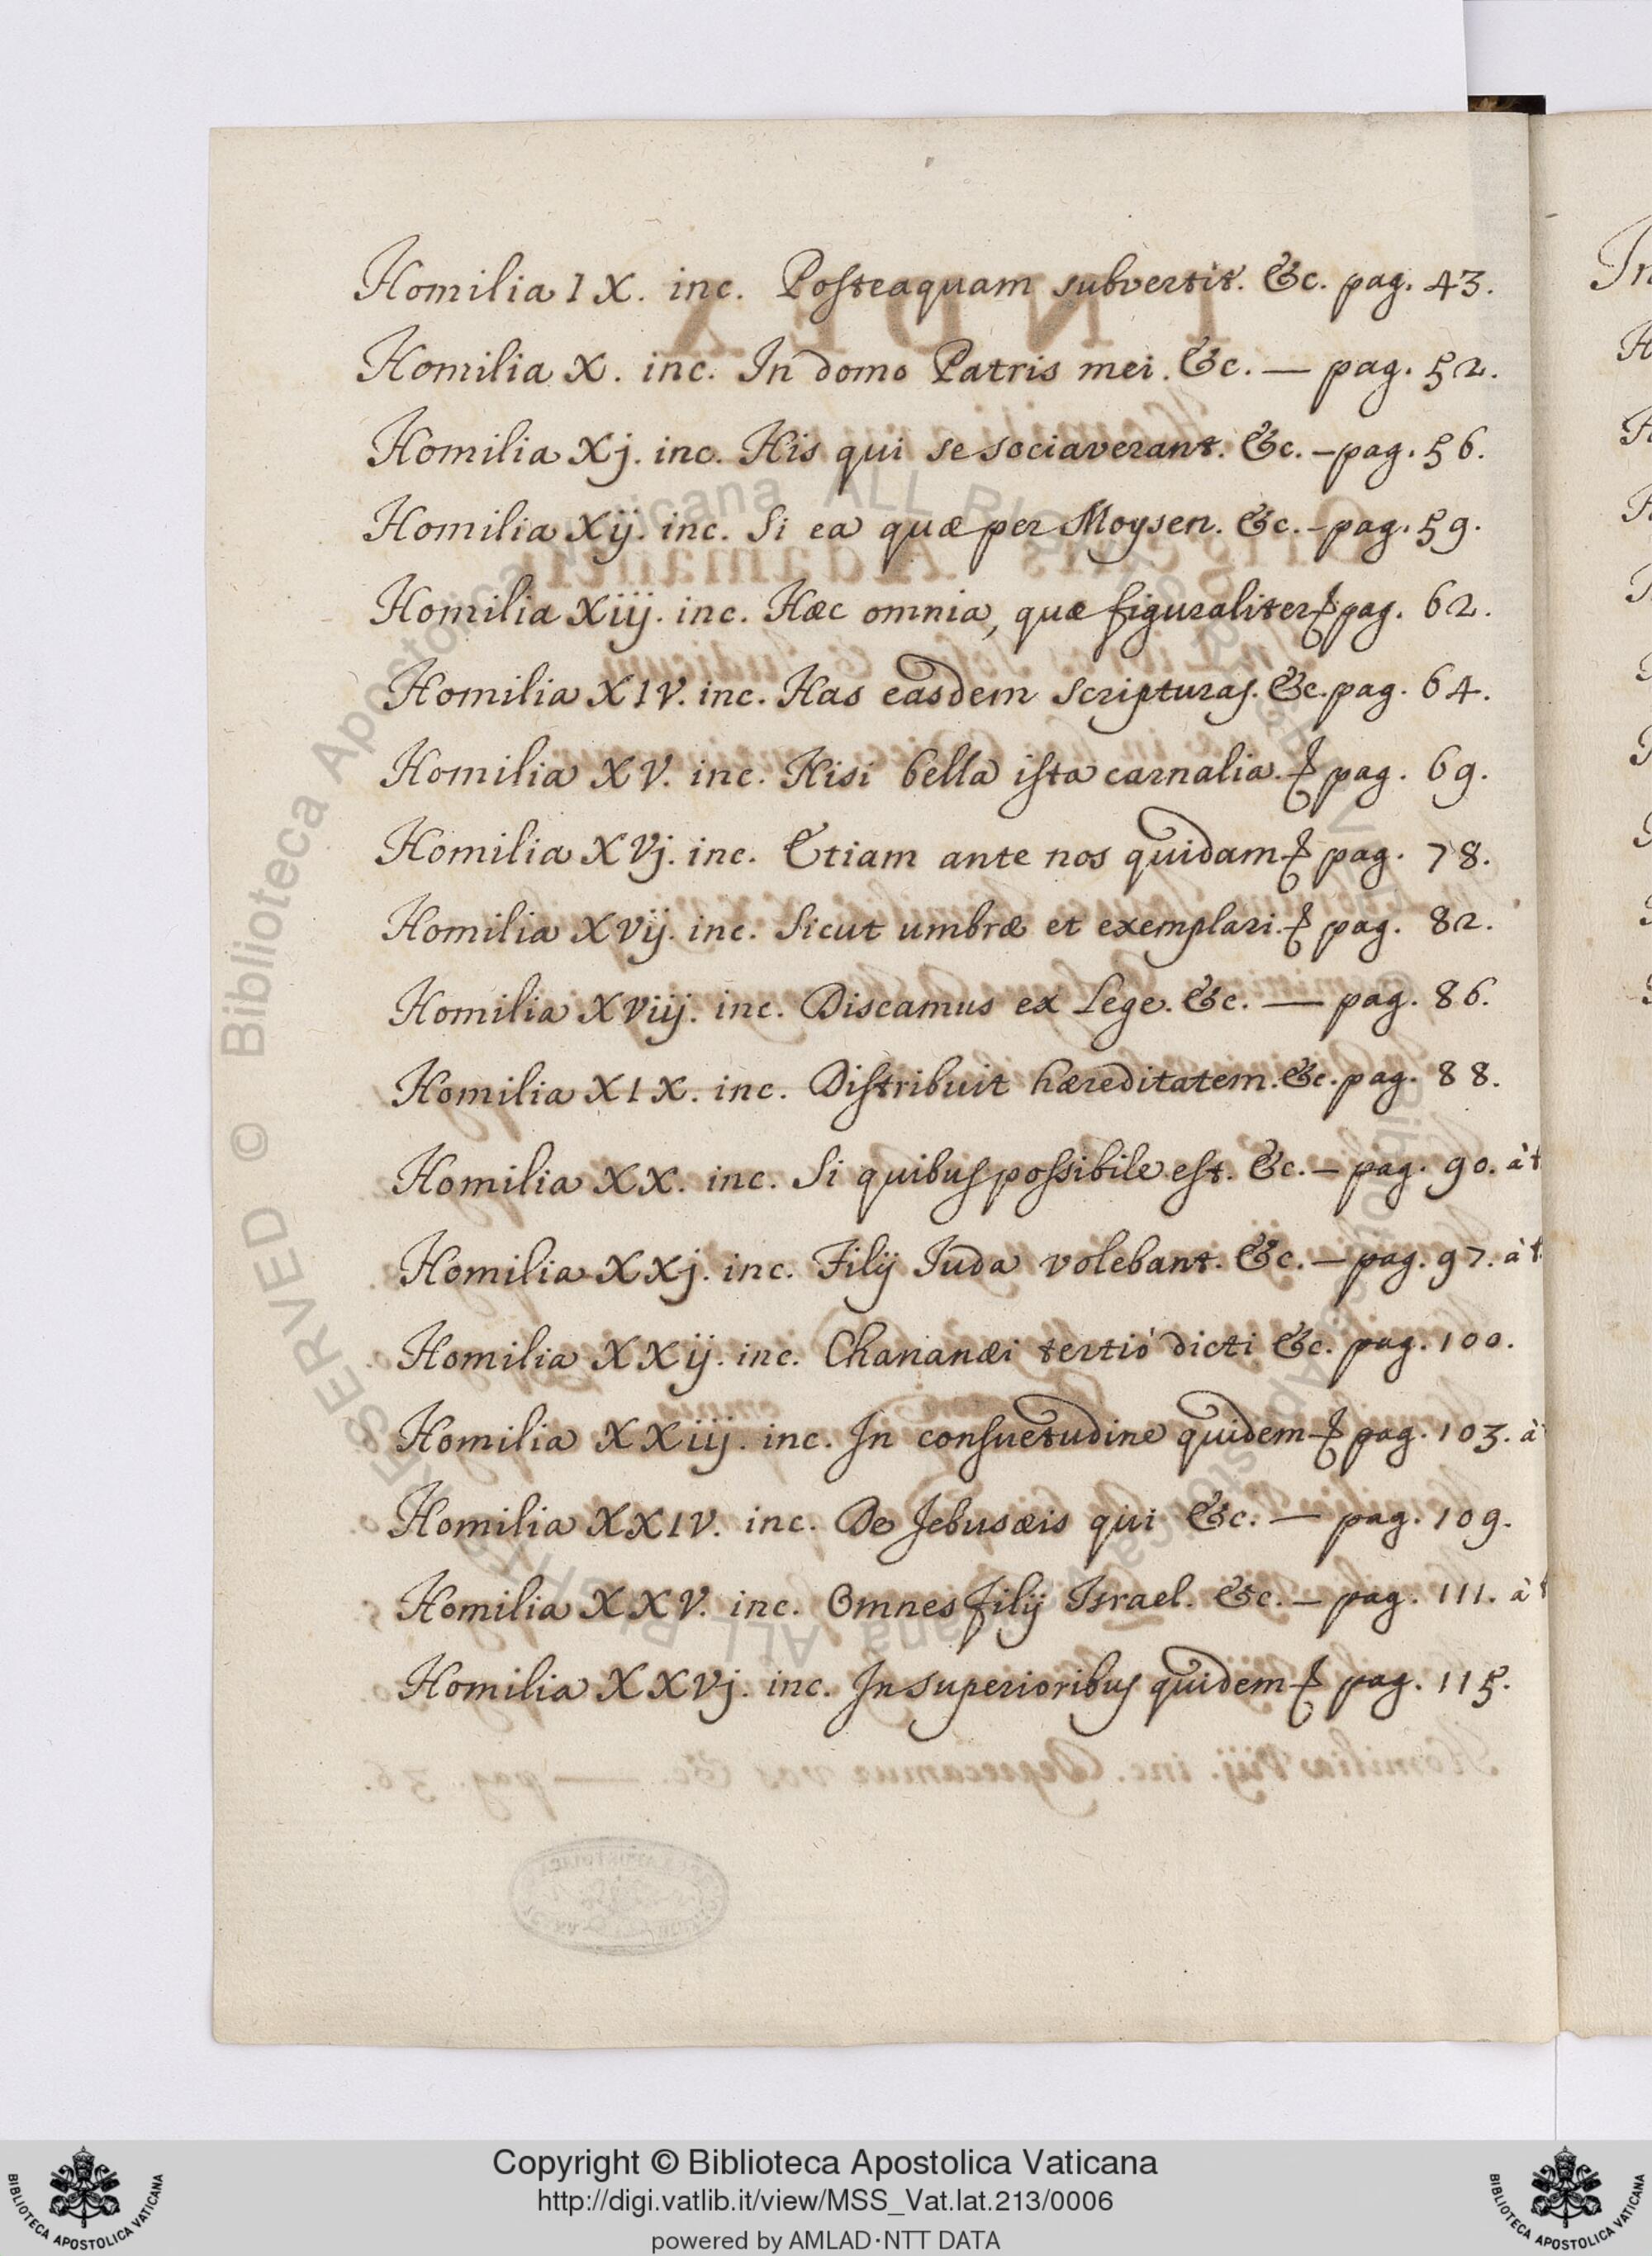 Homilia IX. inc. Posteaquam subvertit. &c. pag. 43.
Homilia X. inc. In domo Patris mei. &c. — pag. 52.
Homilia Xj. inc. His qui se sociaverant. &c. – pag. 56.
Homilia Xij. inc. Si ea quæ per Moysen. &c. – pag. 59.
Homilia Xiij. inc. Hæc omnia, quæ figuraliter & pag. 62.
Homilia XIV. inc. Has easdem scripturas. &c. pag. 64.
Homilia XV. inc. Nisi bella ista carnalia. & pag. 69.
Homilia XVj. inc. Etiam ante nos quidam & pag. 78.
Homilia XVij. inc. Sicut umbræ et exemplari. & pag. 82.
Homilia XViij. inc. Discamus ex Lege. &c. — pag. 86.
Homilia XIX. inc. Distribuit hæreditatem. &c. pag. 88.
Homilia XX. inc. Si quibus possibile est. &c. – pag. 90. àt
Homilia XXj. inc. Filij Iuda volebant. &c. – pag. 97. àt
Homilia XXij. inc. Chananæi tertiò dicti &c. pag. 100.
Homilia XXiij. inc. In consuetudine quidem & pag. 103. à
Homilia XXIV. inc. De Jebusæis qui &c. — pag. 109.
Homilia XXV. inc. Omnes filij Israel. &c. – pag. 111. àt
Homilia XXVj. inc. In superioribus quidem & pag. 115.
© Biblioteca Apostolica Vaticana ALL RIGHTS RESERVED
Copyright © Biblioteca Apostolica Vaticana
http://digi.vatlib.it/view/MSS_Vat.lat.213/0006
powered by AMLAD·NTT DATA
BIBLIOTECA APOSTOLICA VATICANA
BIBLIOTECA APOSTOLICA VATICANA